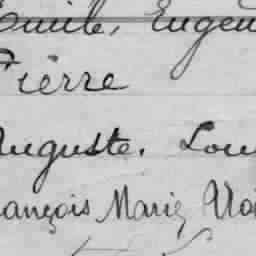 Emile, Eugen
Pierre
Auguste. Lou
rançois Marie